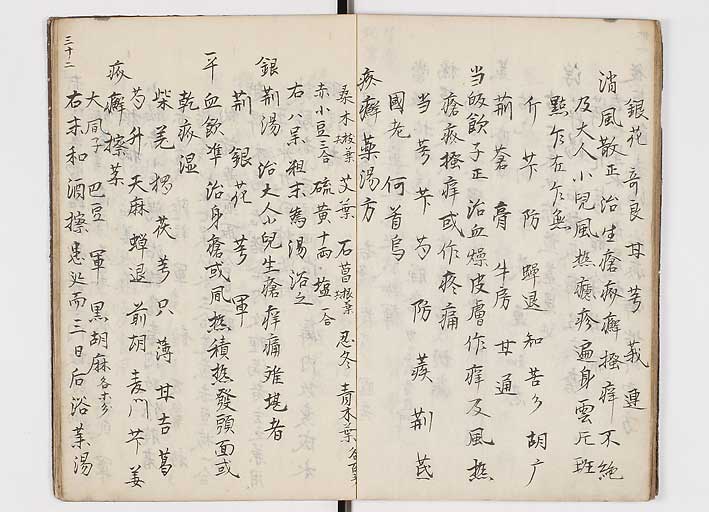 銀花 奇良 甘 芩 莪 連
消風散正治生瘡疥癬搔痒不絶
及大人小兒風熱癮疹遍身雲片斑
點乍在乍無
芐 防 蟬退 知 苦 胡 广
荊 蒼 膏 牛房 甘 通
當飲子正治血燥皮膚作痒及風熱
瘡疥搔痒或作疼痛
當 芎 芐 芍 防 蒺 荊 芪
國老 何首烏
疥癬藥湯方
桑木枝葉 艾葉 石菖根葉 忍冬 青木葉
赤小豆三合 硫黄十両 塩一合
右八味粗末為湯浴之
銀荊湯 治大人小兒生瘡痒痛難堪者
荊 銀花 芩 軍
平血飲準 治身瘡或風熱積熱發頭面或
乾疥湿
柴 羌 獨 茯 芎 只 薄 甘 吉 葛
芍 升 天麻 蝉退 前胡 麦門 芐 姜
疥癬擦菜
大風子 巴豆 軍 黒胡麻各等分
右末和酒擦患処而三日后浴薬湯
三十二